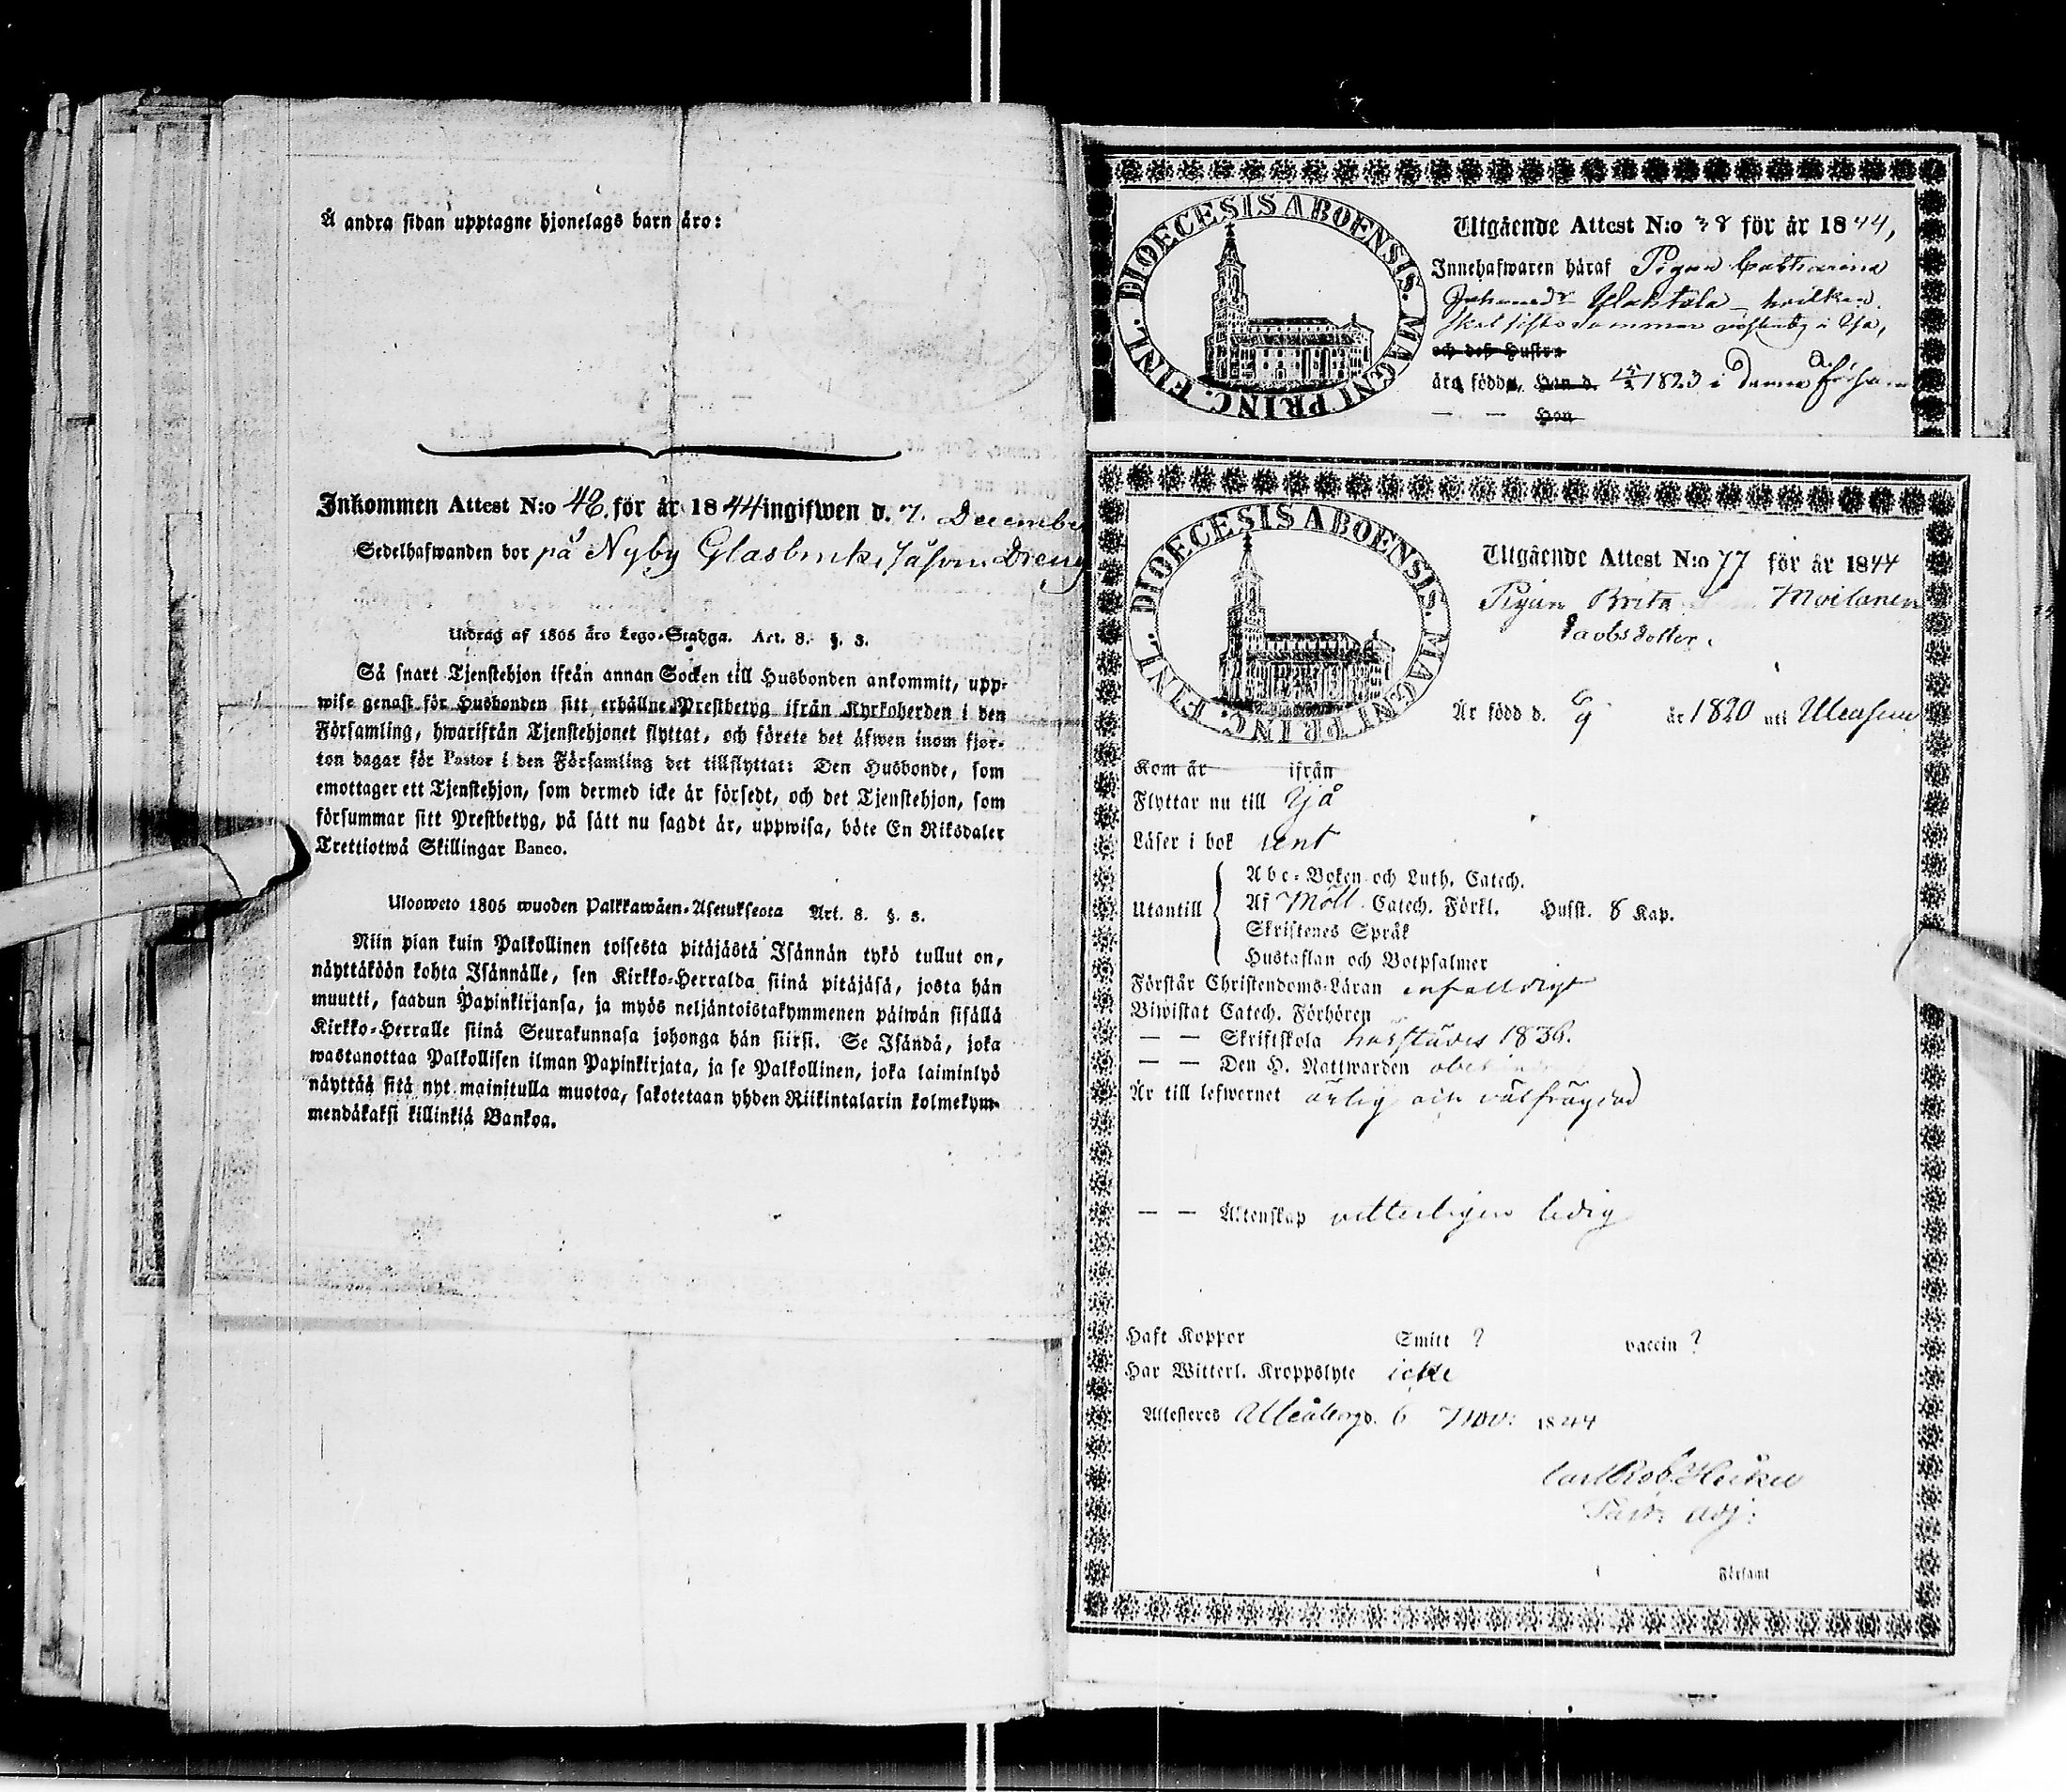 Å andra sidan upptagne hjonelags barn äro:
Inkommen Attest N:o 42. för år 1844 ingifwen d. 7. December
Sedelhafwanden bor på Nyby Glasbruk såsom Dreng
Utdrag af 1805 års Lego-Stadga. Art. 8. §. 3.
Så snart Tjenstehjon ifrån annan Socken till Husbonden ankommit, upp-
wise genast för Husbonden sitt erhållne Prestbetyg ifrån Kyrkoherden i den
Församling, hwarifrån Tjenstehjonet flyttat, och förete det äfwen inom fjor-
ton dagar för Pastor i den Församling det tillflyttat: Den Husbonde, som
emottager ett Tjenstehjon, som dermed icke är försedt, och det Tjenstehjon, som
försummar sitt Prestbetyg, på sätt nu sagdt är, uppwisa, böte En Riksdaler
Trettiotwå Skillingar Banco.
Ulosweto 1805 wuoden Palkkawäen-Asetuksesta Art. 8. §. 3.
Niin pian kuin Palkollinen toisesta pitäjästä Isännän tykö tullut on,
näyttäköön kohta Isännälle, sen Kirkko-Herralda siinä pitäjäsä, josta hän
muutti, saadun Papinkirjansa, ja myös neljäntoistakymmenen päiwän sisällä
Kirkko-Herralle siinä Seurakunnasa johonga hän siirsi. Se Isändä, joka
wastanottaa Palkollisen ilman Papinkirjata, ja se Palkollinen, joka laiminlyö
näyttää sitä nyt mainitulla muotoa, sakotetaan yhden Riikintalarin kolmekym-
mendäkaksi killinkiä Bankoa.
DIOECESIS ABOENSIS. MAGNI PRINC. FINL.
Utgående Attest N:o 38 för år 1844,
Innehafwaren häraf Pigan Catharina
hvilken
sista sommar
och dess Hustru
äro födda, Han d. 1823 i denna Församl
— — Hon
DIOECESIS ABOENSIS. MAGNI PRINC. FINL.
Utgående Attest N:o 77 för år 1844
Pigan Brita Moilanen
Jacobsdotter.
Är född d. 6/9 år 1820 uti Uleåsocken
Kom år ifrån
Flyttar nu till Ijå
Läser i bok rent
Utantill
Abc-Boken och Luth. Catech.
Af Möll. Catech. Förkl. Husst. 8 Kap.
Skriftenes Språk
Hustaflan och Botpsalmer
Förstår Christendoms-Läran enfalldigt
Biwistat Catech. Förhören
— — Skriftskola härstädes 1836.
— — Den H. Nattwarden
Är till lefwernet ärlig och välfrägdad
— — Äktenskap vetterligen ledig
Haft Koppor Smitt ? vaccin ?
Har Witterl. Kroppslyte icke
Attesteres Uleåborg d. 6 Nov: 1844
Carl Rob. Heikel
Past: adj:
Församl